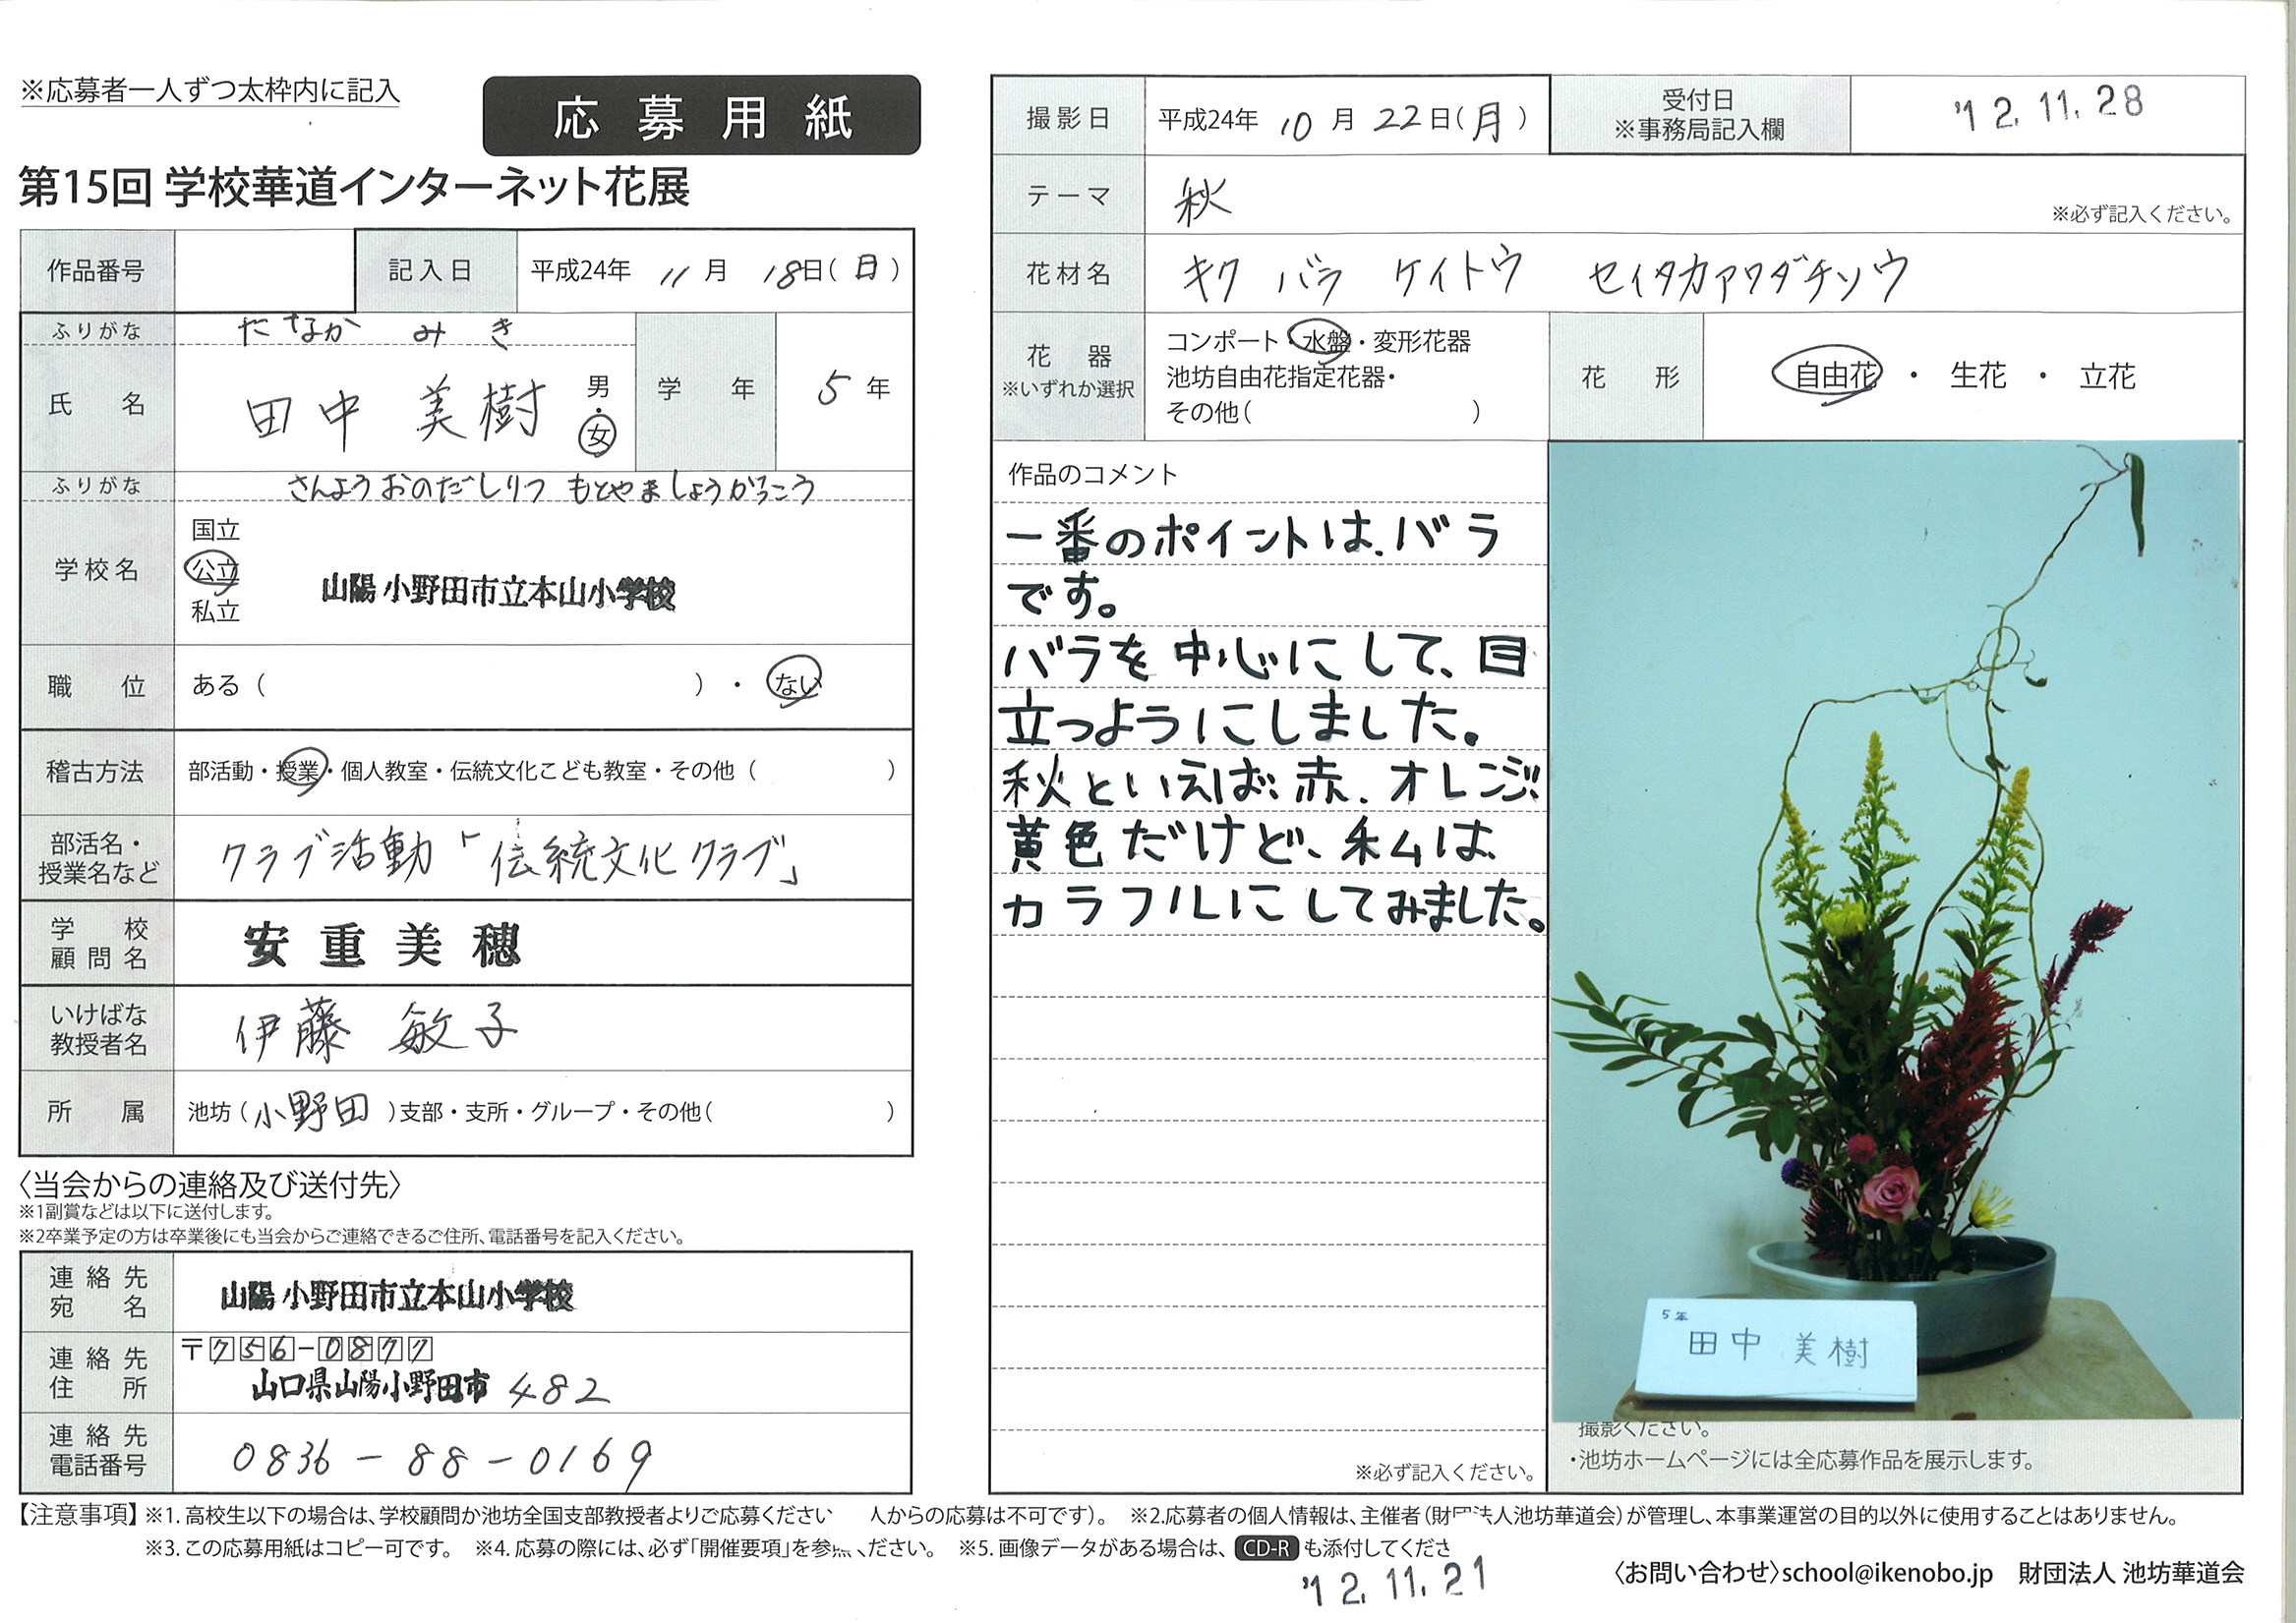 ※応募者一人ずつ太枠内に記入
応募用紙
第15回 学校華道インターネット花展
作品番号
記入日 平成24年 11月 18日(日)
ふりがな たなか みき
氏名 田中 美樹 男・女
学年 5年
ふりがな さんようおのだしりつ もとやましょうがっこう
学校名 国立 公立 私立 山陽小野田市立本山小学校
職位 ある( )・ない
稽古方法 部活動・授業・個人教室・伝統文化こども教室・その他( )
部活名・授業名など クラブ活動「伝統文化クラブ」
学校顧問名 安重美穂
いけばな教授者名 伊藤 敏子
所属 池坊(小野田)支部・支所・グループ・その他( )
〈当会からの連絡及び送付先〉
※1副賞などは以下に送付します。
※2卒業予定の方は卒業後にも当会からご連絡できるご住所、電話番号を記入ください。
連絡先宛名 山陽小野田市立本山小学校
連絡先住所 〒756-0877
山口県山陽小野田市 482
連絡先電話番号 0836-88-0169
撮影日 平成24年 10月 22日(月)
受付日 ※事務局記入欄 '12.11.28
テーマ 秋
※必ず記入ください。
花材名 キク バラ ケイトウ セイタカアワダチソウ
花器 ※いずれか選択
コンポート・水盤・変形花器
池坊自由花指定花器・
その他( )
花形 自由花・生花・立花
作品のコメント
一番のポイントは、バラ
です。
バラを中心にして、目
立つようにしました。
秋といえば、赤、オレンジ、
黄色だけど、私は、
カラフルにしてみました。
※必ず記入ください。
5年
田中 美樹
撮影ください。
・池坊ホームページには全応募作品を展示します。
【注意事項】※1. 高校生以下の場合は、学校顧問か池坊全国支部教授者よりご応募ください 人からの応募は不可です)。 ※2.応募者の個人情報は、主催者(財団法人池坊華道会)が管理し、本事業運営の目的以外に使用することはありません。
※3. この応募用紙はコピー可です。 ※4. 応募の際には、必ず「開催要項」を参照ください。 ※5. 画像データがある場合は、CD-Rも添付してくださ
'12.11.21
〈お問い合わせ〉school@ikenobo.jp 財団法人 池坊華道会